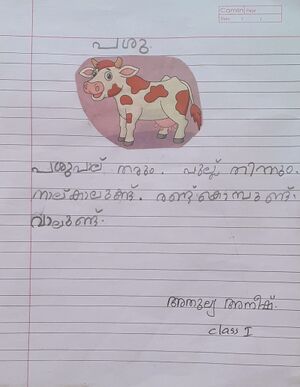 Camlin Page
Date / /
പശു.
പശുപാല് തരും. പുല്ല് തിന്നും.
നാല്കാലുണ്ട്. രണ്ട്കൊമ്പുണ്ട്.
വാലുണ്ട്.
അതുല്യ അനീഷ്.
class I